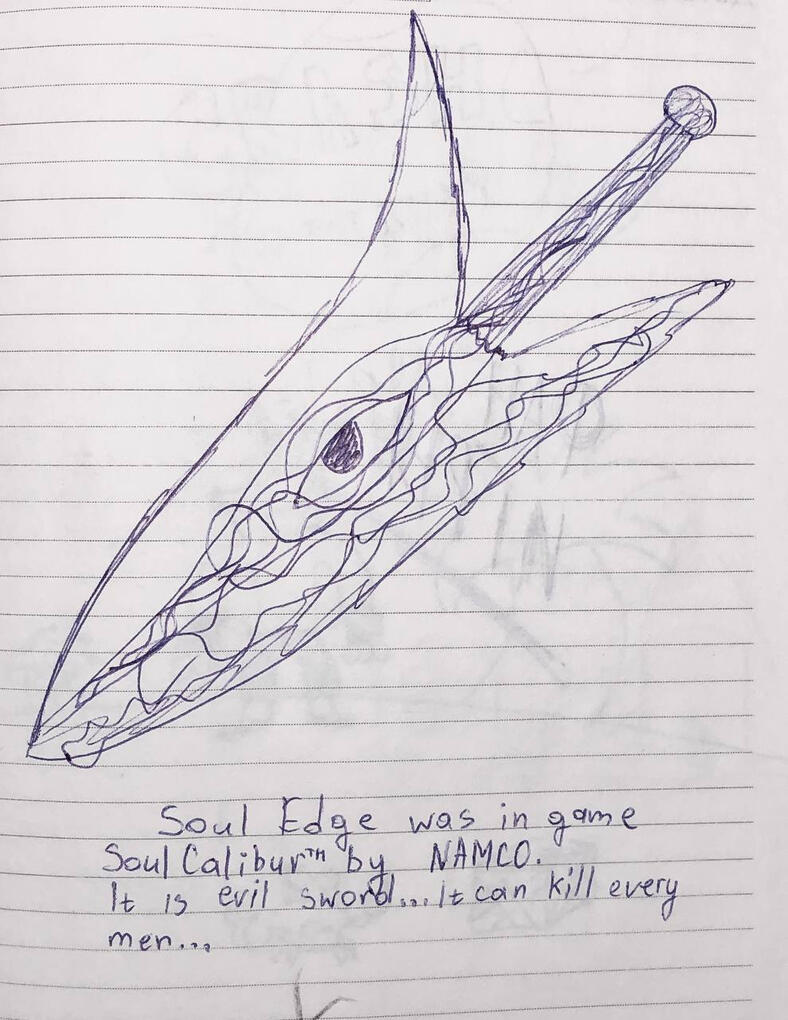 Soul Edge was in game
Soul Calibur™ by NAMCO.
It is evil sword...It can kill every
men...